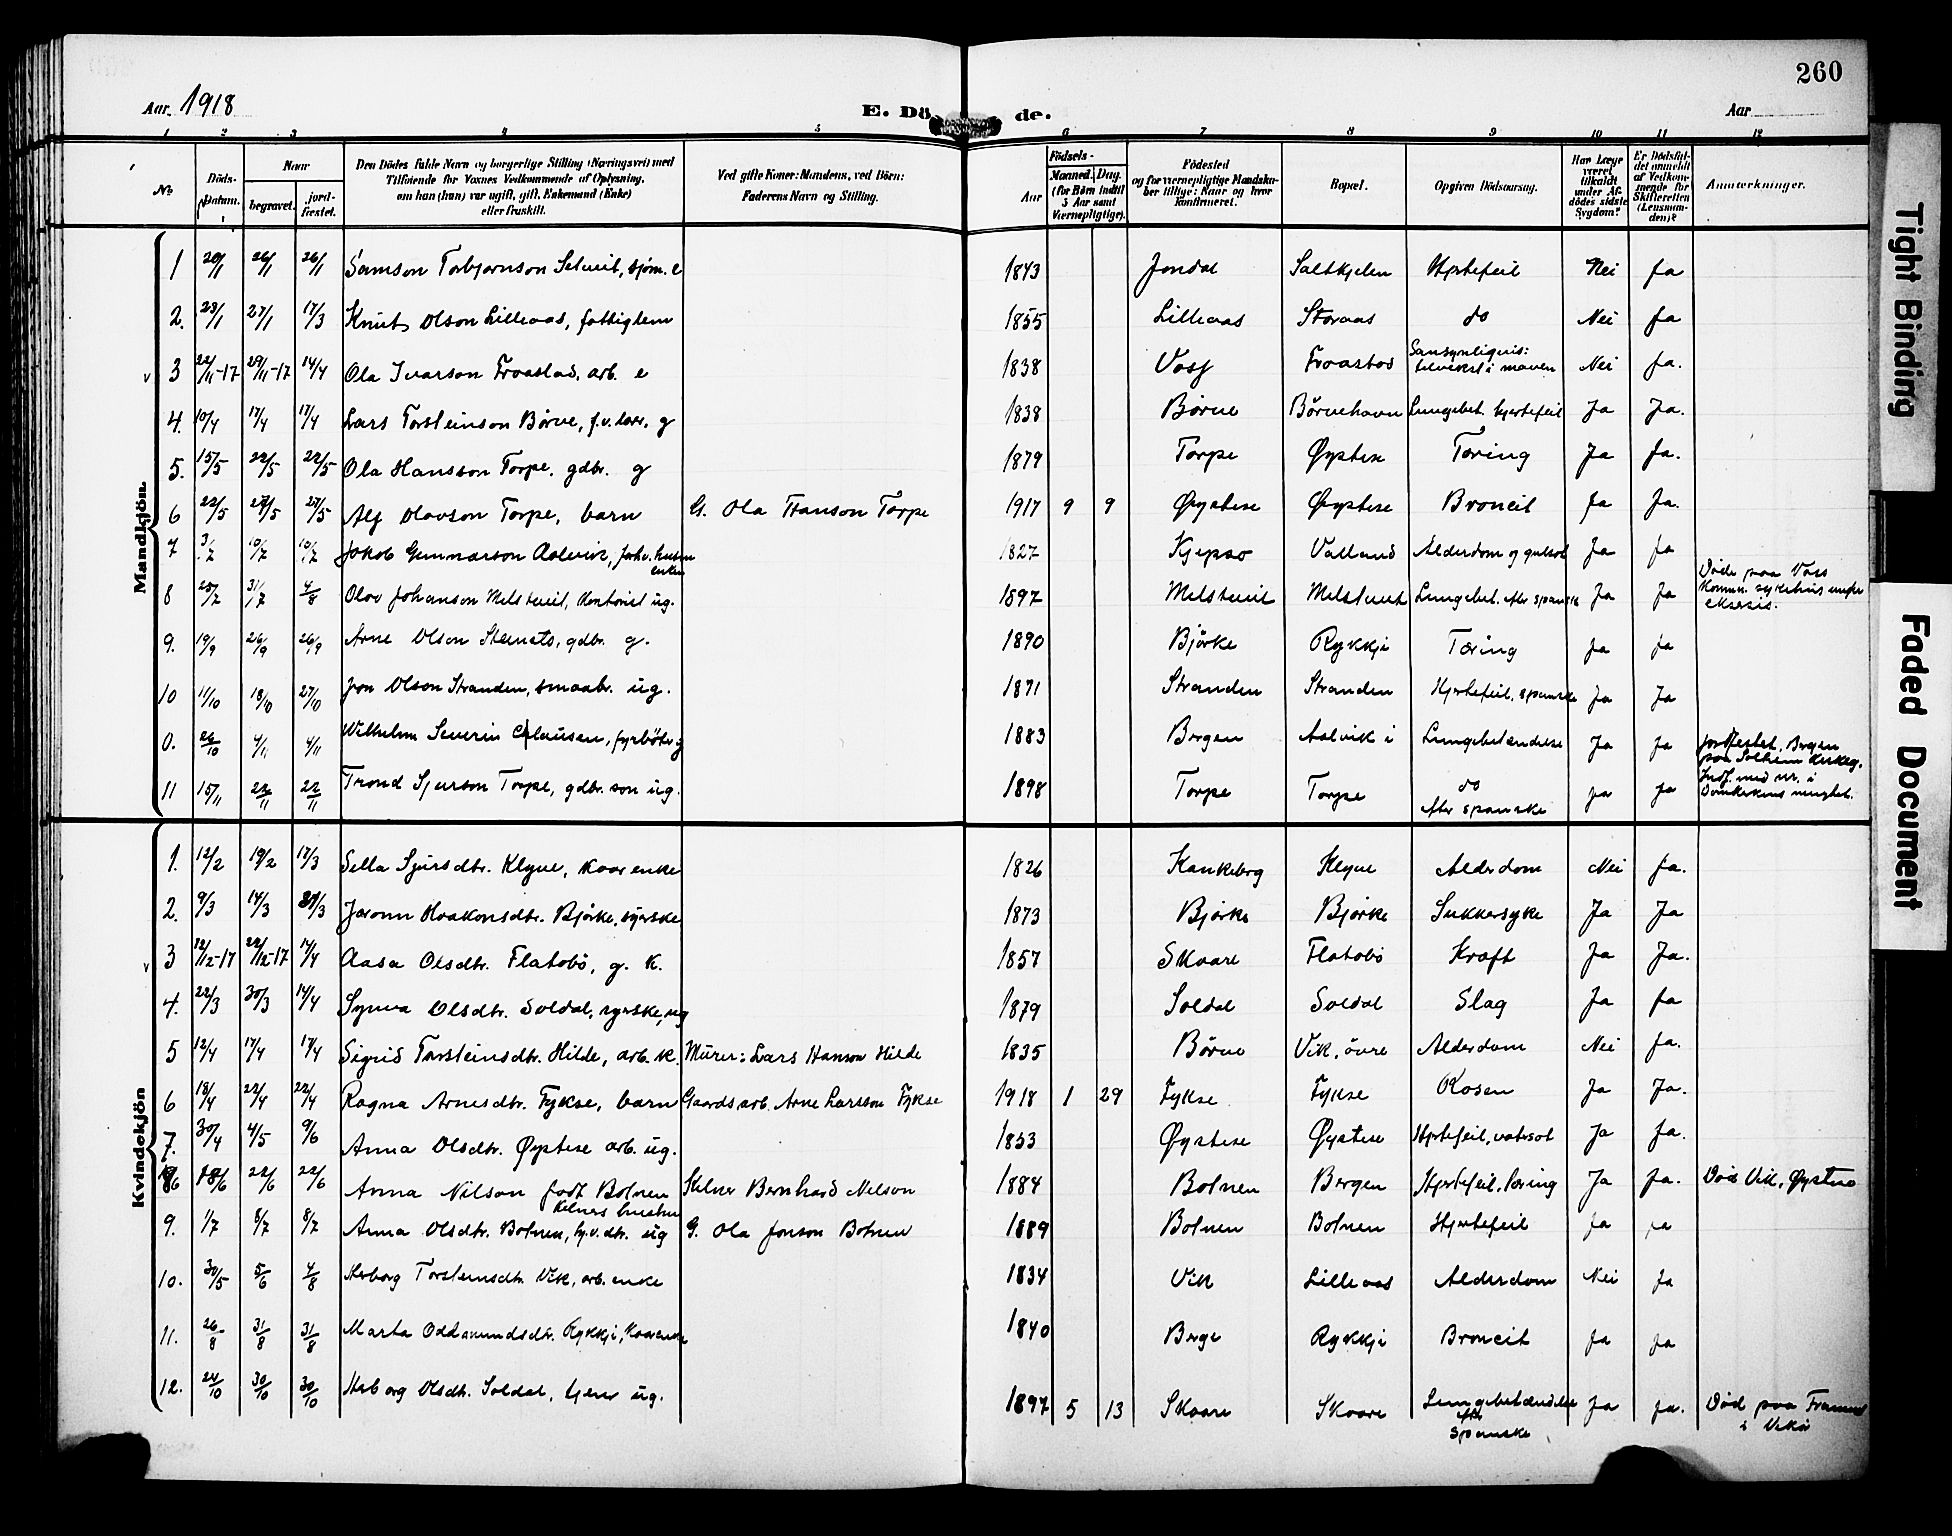 260
Aar. 1918
E. Dö de.
Aar
1 2 3 4 5 6 7 8 9 10 11 12
No
Döds-Datum.
Naar
begravet.
jord-fæstet.
Den Dödes fulde Navn og borgerlige Stilling (Næringsvei) med
Tilföiende for Voxnes Vedkommende af Oplysning,
om han (hun) var ugift, gift, Enkemand (Enke)
eller fraskilt.
Ved gifte Koner: Mandens, ved Börn:
Faderens Navn og Stilling.
Födsels-
Aar
Maaned. Dag.
(for Börn indtil 5 Aar samt Værnepligtige).
Födested
og for værnepligtige Mandskaber tillige: Naar og hvor konfirmeret.
Bopæl.
Opgiven Dödsaarsag.
Har Læge været tilkaldt under Afdödes sidste Sygdom?
Er Dödsfaldet anmeldt af Vedkommende for Skifteretten (Lensmanden)?
Anmærkninger.
Mandkjön
1 20/1 26/1 26/1 Samson Torbjørnson Selsvit, sjøm. e 1843 Jondal Saltkjelen Hjertefeil Nei Ja
2. 23/1 27/1 17/3 Knut Olson Lilleaas, fattiglem 1855 Lilleaas Storaas do Nei Ja
v 3 22/11-17 29/11-17 14/4 Ola Ivarson Froastad, arb. e 1838 Voss Froastad Sansynligvis: tilvekst i maven Nei Ja.
4. 10/4 17/4 17/4 Lars Torsteinson Børve, f.v. lærer. g 1838 Børve Børvehavn Lungebet. hjertefeil Ja Ja.
5. 15/5 22/5 22/5 Ola Hansson Torpe, gdbr. g 1879 Torpe Øystese Tæring Ja Ja.
6 22/5 27/5 27/5 Alf Olavson Torpe, barn G. Ola Hanson Torpe 1917 9 9 Øystese Øystese Broncit Ja Ja.
7 3/7 10/7 10/7 Jakob Gunnarson Aalvik, forhv. husm enkem 1827 Kjepso Valland Alderdom og gulsot Ja Ja
8 25/7 31/7 4/8 Olav Johanson Melstveit, Kontorist ug. 1897 Melstveit Melstveit Lungebet. efter spanske Ja Ja Døde paa Voss Kommun. sykehus under eksersis.
9. 19/9 26/9 26/9 Arne Olson Steinstø, gdbr. g. 1890 Bjørke Rykkje Tæring Ja Ja
10 11/10 18/10 27/10 Jon Olson Stranden, smaabr. ug. 1871 Stranden Stranden Hjertefeil. spanske Ja Ja
0. 26/10 4/11 4/11 Wilhelm Severin Clausen, fyrbøter g 1883 Bergen Aalvik i Lungebetændelse Ja Ja Jordfestet, Bergen paa Solheim Kirkeg. Indf. med nr. i Domkirkens menighet.
11 15/11 22/11 22/11 Trond Sjurson Torpe, gdbr. son ug. 1898 Torpe Torpe do efter spanske Ja Ja
Kvindekjön
1. 12/2 19/2 17/3 Sella Sjursdtr. Klyve, Kaarenke 1826 Kankeberg Klyve Alderdom Nei Ja.
2. 9/3 14/3 21/3 Joronn Haakonsdtr. Bjørke, syerske 1873 Bjørke Bjørke Sukkersyke Ja Ja
v 3 12/12-17 22/12-17 14/4 Aasa Olsdtr. Flatebø, g. K. 1857 Skaare Flatebø Kræft Ja Ja.
4. 22/3 30/3 14/4 Synva Olsdtr. Soldal, syerske, ug 1879 Soldal Soldal Slag Ja Ja
5 12/4 17/4 17/4 Sigrid Torsteinsdtr. Hilde, arb. K. Murer: Lars Hanson Hilde 1835 Børve Vik, øvre Alderdom Nei Ja.
6 18/4 22/4 22/4 Ragna Arnesdtr. Fykse, barn Gaardsarb. Arne Larsson Fykse 1918 1 29 Fykse Fykse Rosen Ja Ja.
7. 30/4 4/5 9/6 Anna Olsdtr. Øystese arb. ug. 1853 Øystese Øystese Hjertefeil, vatersot Ja Ja.
8 18/6 22/6 22/6 Anna Nilson født Botnen Kelners hustru Kelner Bernhard Nelson 1884 Botnen Bergen Hjertefeil, tæring Ja Ja. Død Vik, Øystese
9. 1/7 8/7 8/7 Anna Olsdtr. Botnen, hj.v. dtr. ug G. Ola Jonson Botnen 1889 Botnen Botnen Hjertefeil Ja Ja
10. 30/5 5/6 4/8 Herborg Torsteinsdtr. Vik, arb. enke 1834 Vik Lilleaas Alderdom Nei Ja
11. 26/8 31/8 31/8 Marta Oddmundsdtr. Rykkje, Kaarenke 1840 Berge Rykkje Broncit Ja Ja
12. 24/10 30/10 30/10 Herborg Olsdtr. Soldal, tjener ug. 1897 5 13 Skaare Skaare Lungebetændelse efter spanske Ja Ja. Død paa Framnes i Vikør
Tight Binding
Faded Document